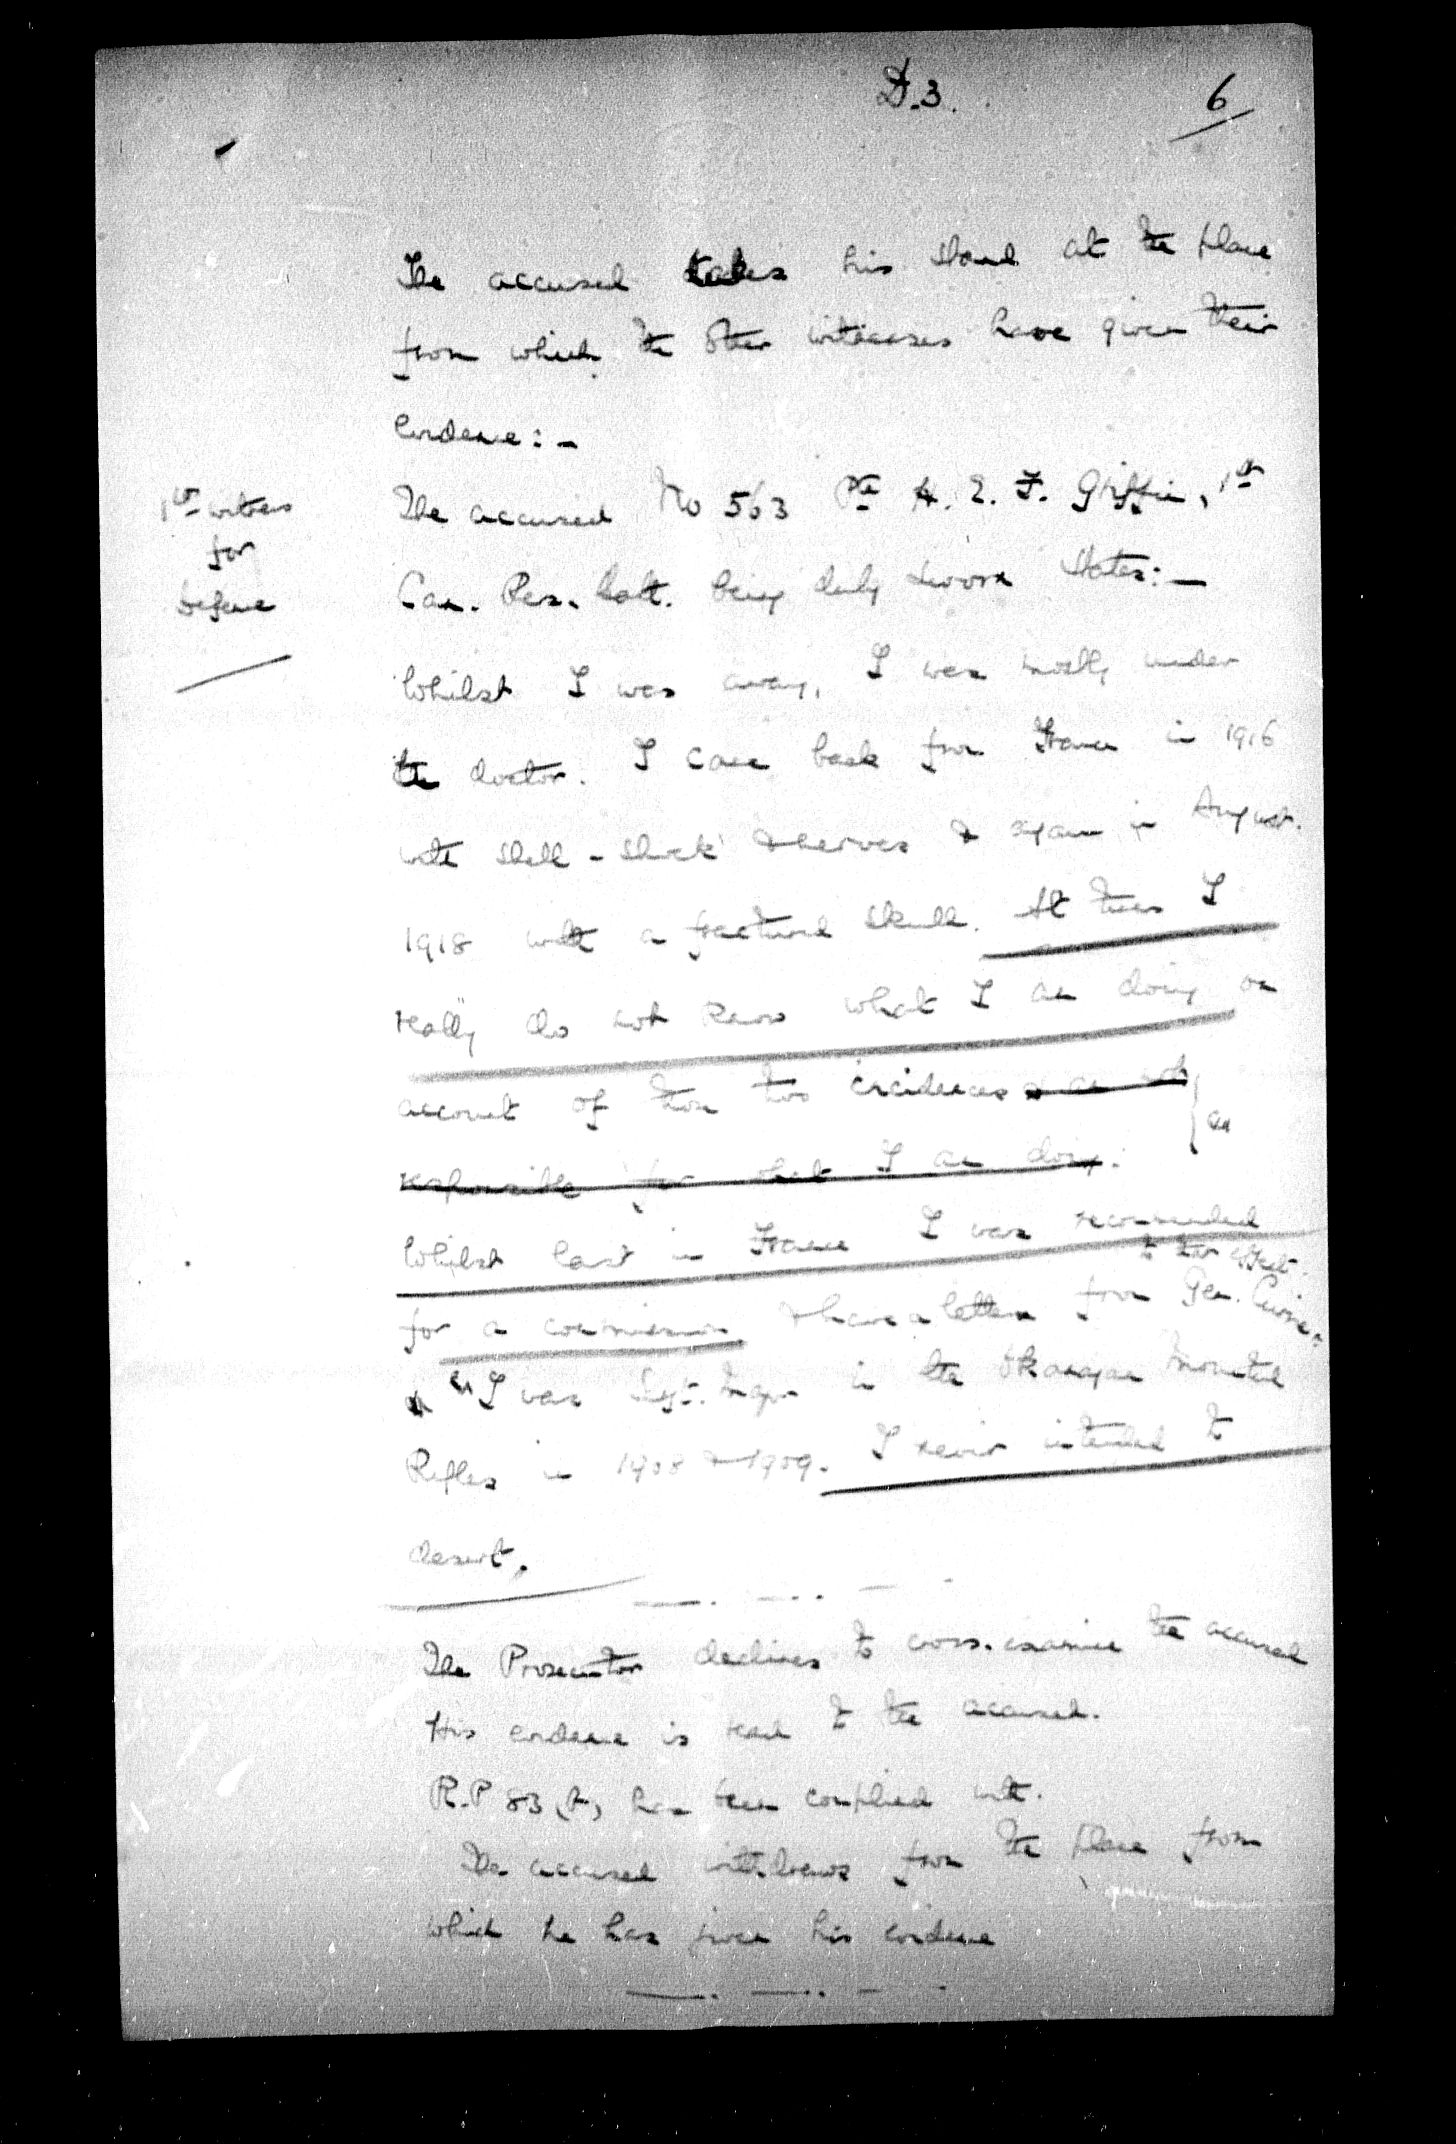 D.3. 6
The accused takes his stand at the place
from which the other witnesses have given their
evidence:-
1st witness
for
Defence
The accused No 563 Pte A. E. F. Griffin, 1st
Can. Res. Batt. being duly sworn states:-
Whilst I was away, I was mostly under
the doctor. I came back from France in 1916
with shell-shock & nerves & again in August.
1918 with a fractured skull. At times I
really do not know what I am doing on
account of these two incidences & am not
responsible for what I am doing.
Whilst last in France I was recommended
to this effect.
for a commission & have a letter from Gen. Currie.
I was Sgt. Major in the Okanagan Mounted
Rifles in 1908 & 1909. I never intended to
desert.
The Prosecutor declines to cross-examine the accused
His evidence is read to the accused.
R.P 83 has been complied with.
The accused withdraws from the place from
which he has given his evidence